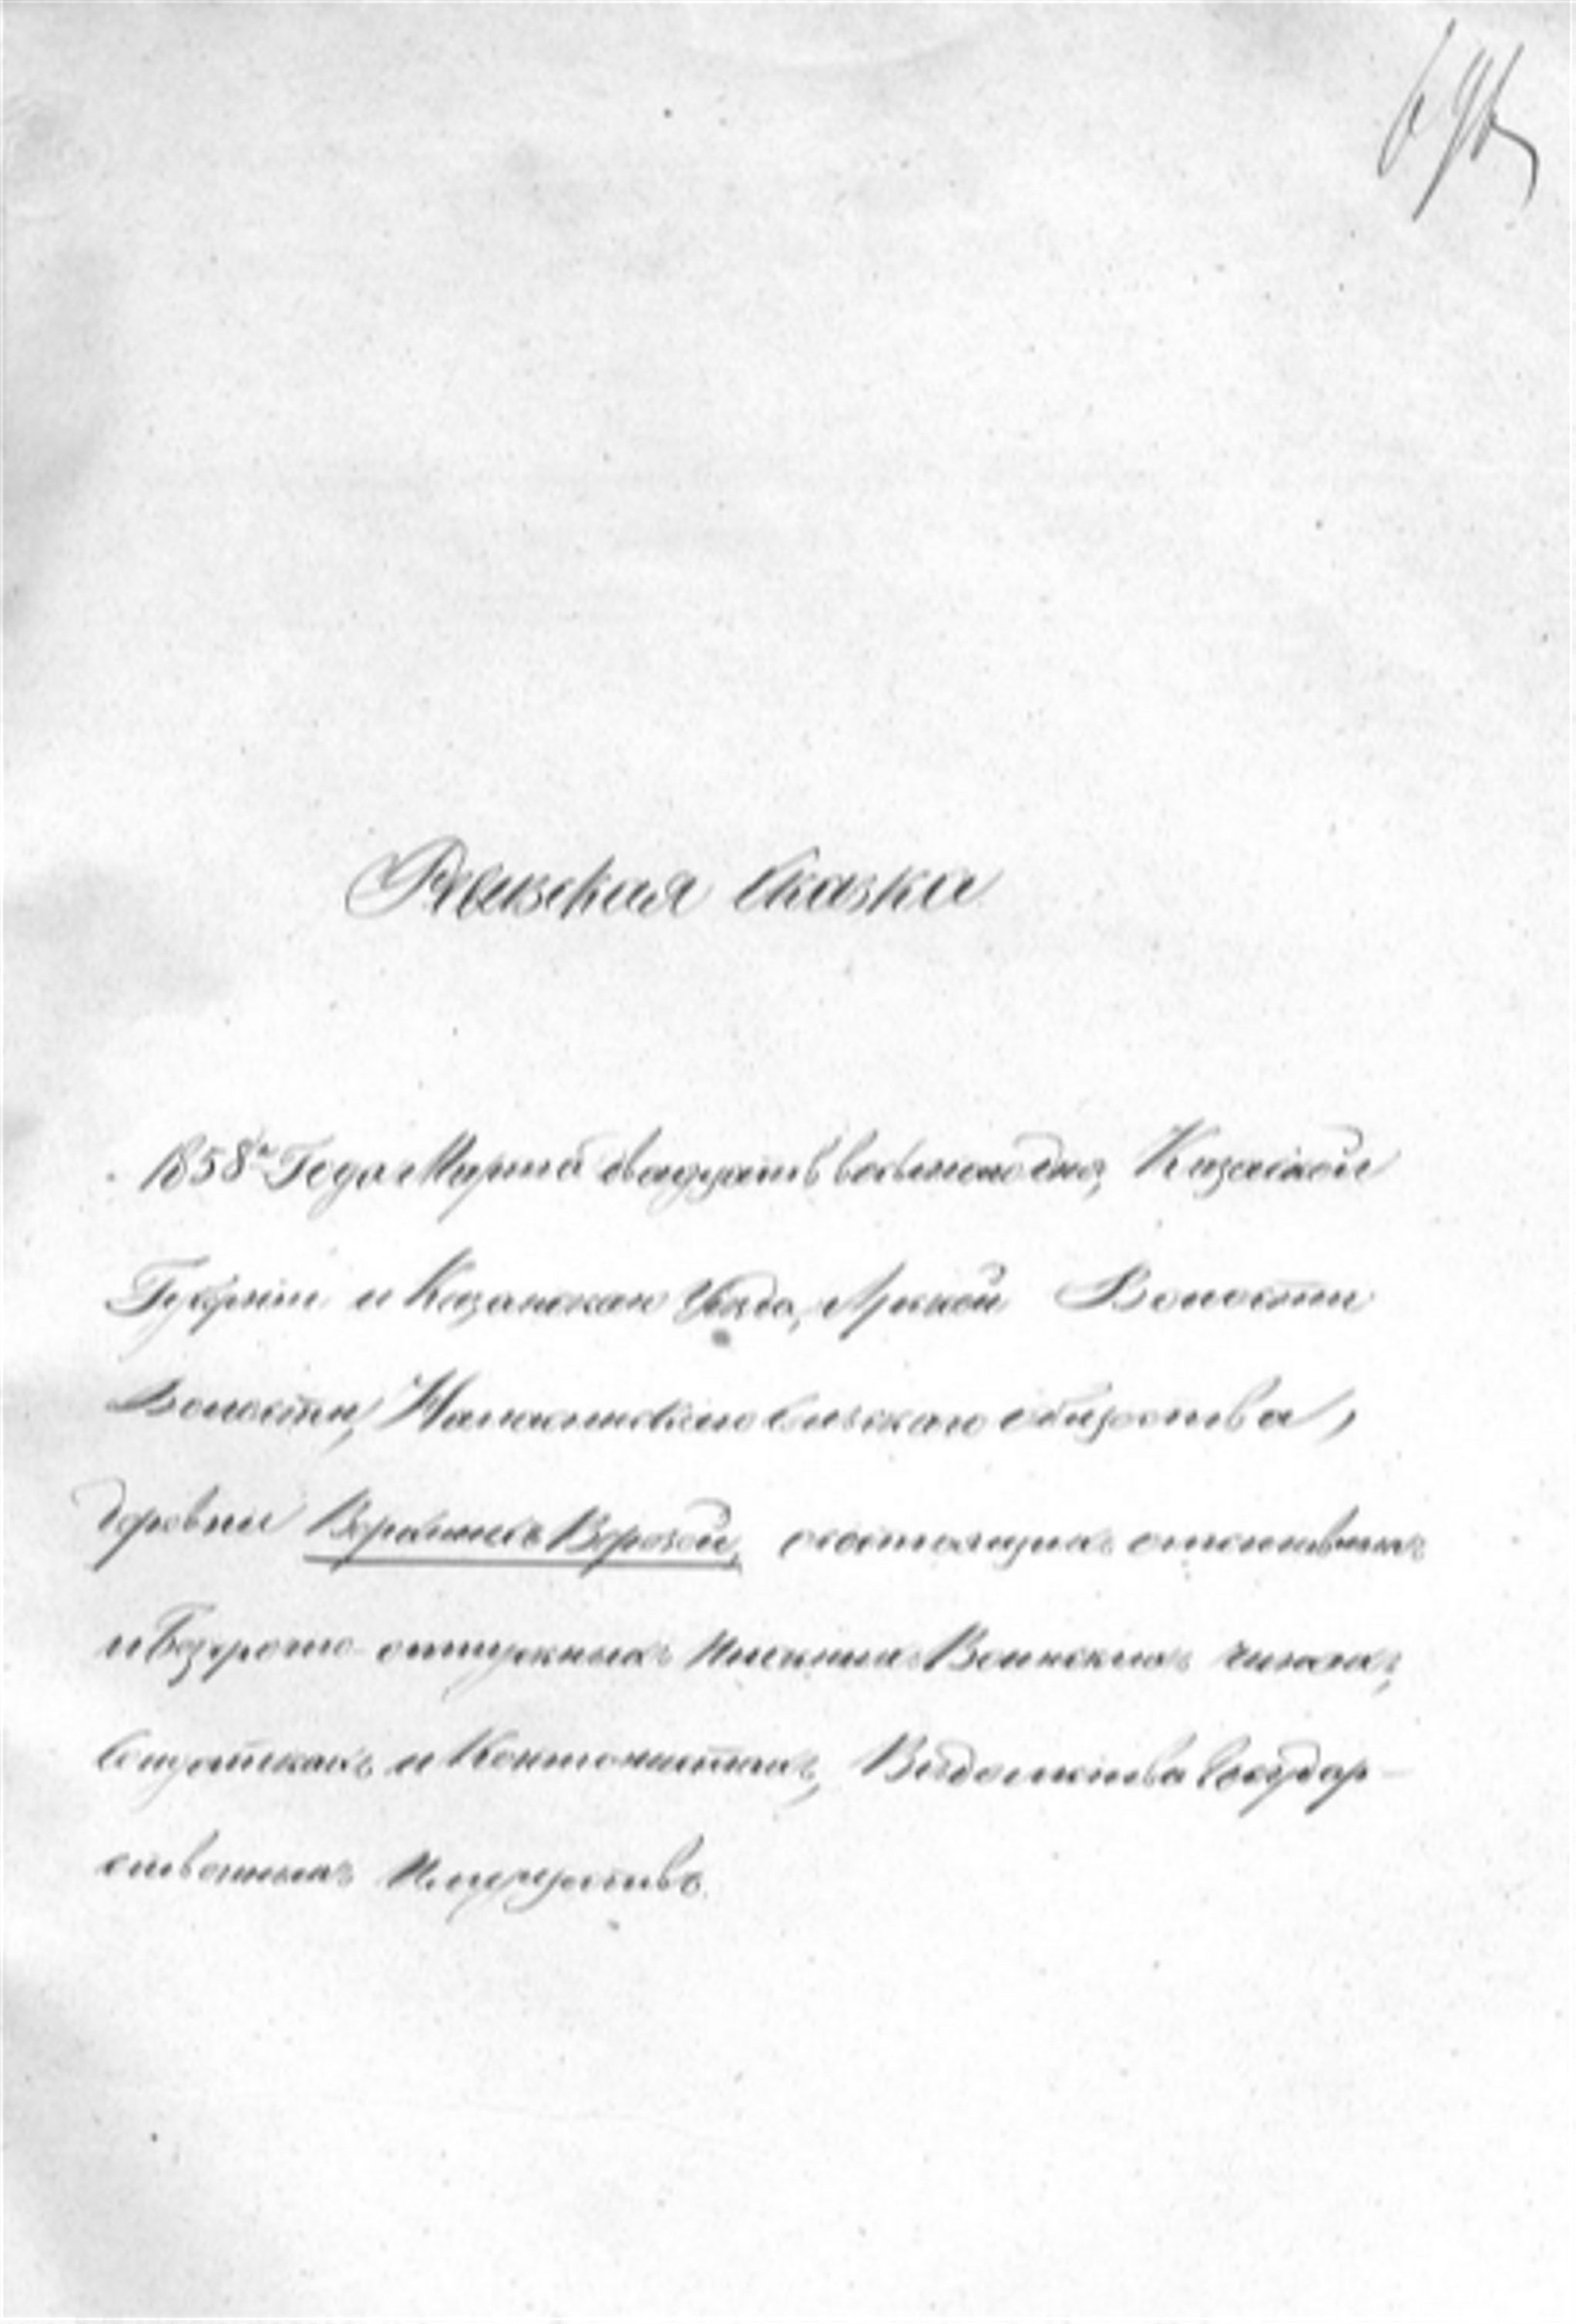 Ревизская Сказка
1858го Года Марта двадцать восьмого дня, Казанской
Губернии и Казанскаго Уезда, Арской Волости
Волости, сельскаго общества,
деревни Верхнихъ Верезей, состоящихъ отставныхъ
и Безсрочно отпускныхъ Нижнихъ Воинскихъ чинахъ,
Солдаткахъ и Кантонистахъ, Ведомства Государ-
ственныхъ Имуществъ.